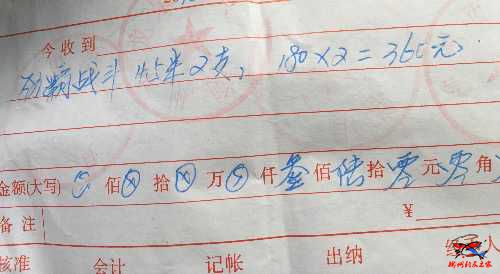 今收到
战斗 2支, 180×2=360元
金额(大写) 佰 ⊗ 拾 ⊗ 万 ⊗ 仟 叁 佰 陆 拾 零 元 零 角
备注 ¥
核准 会计 记帐 出纳 人